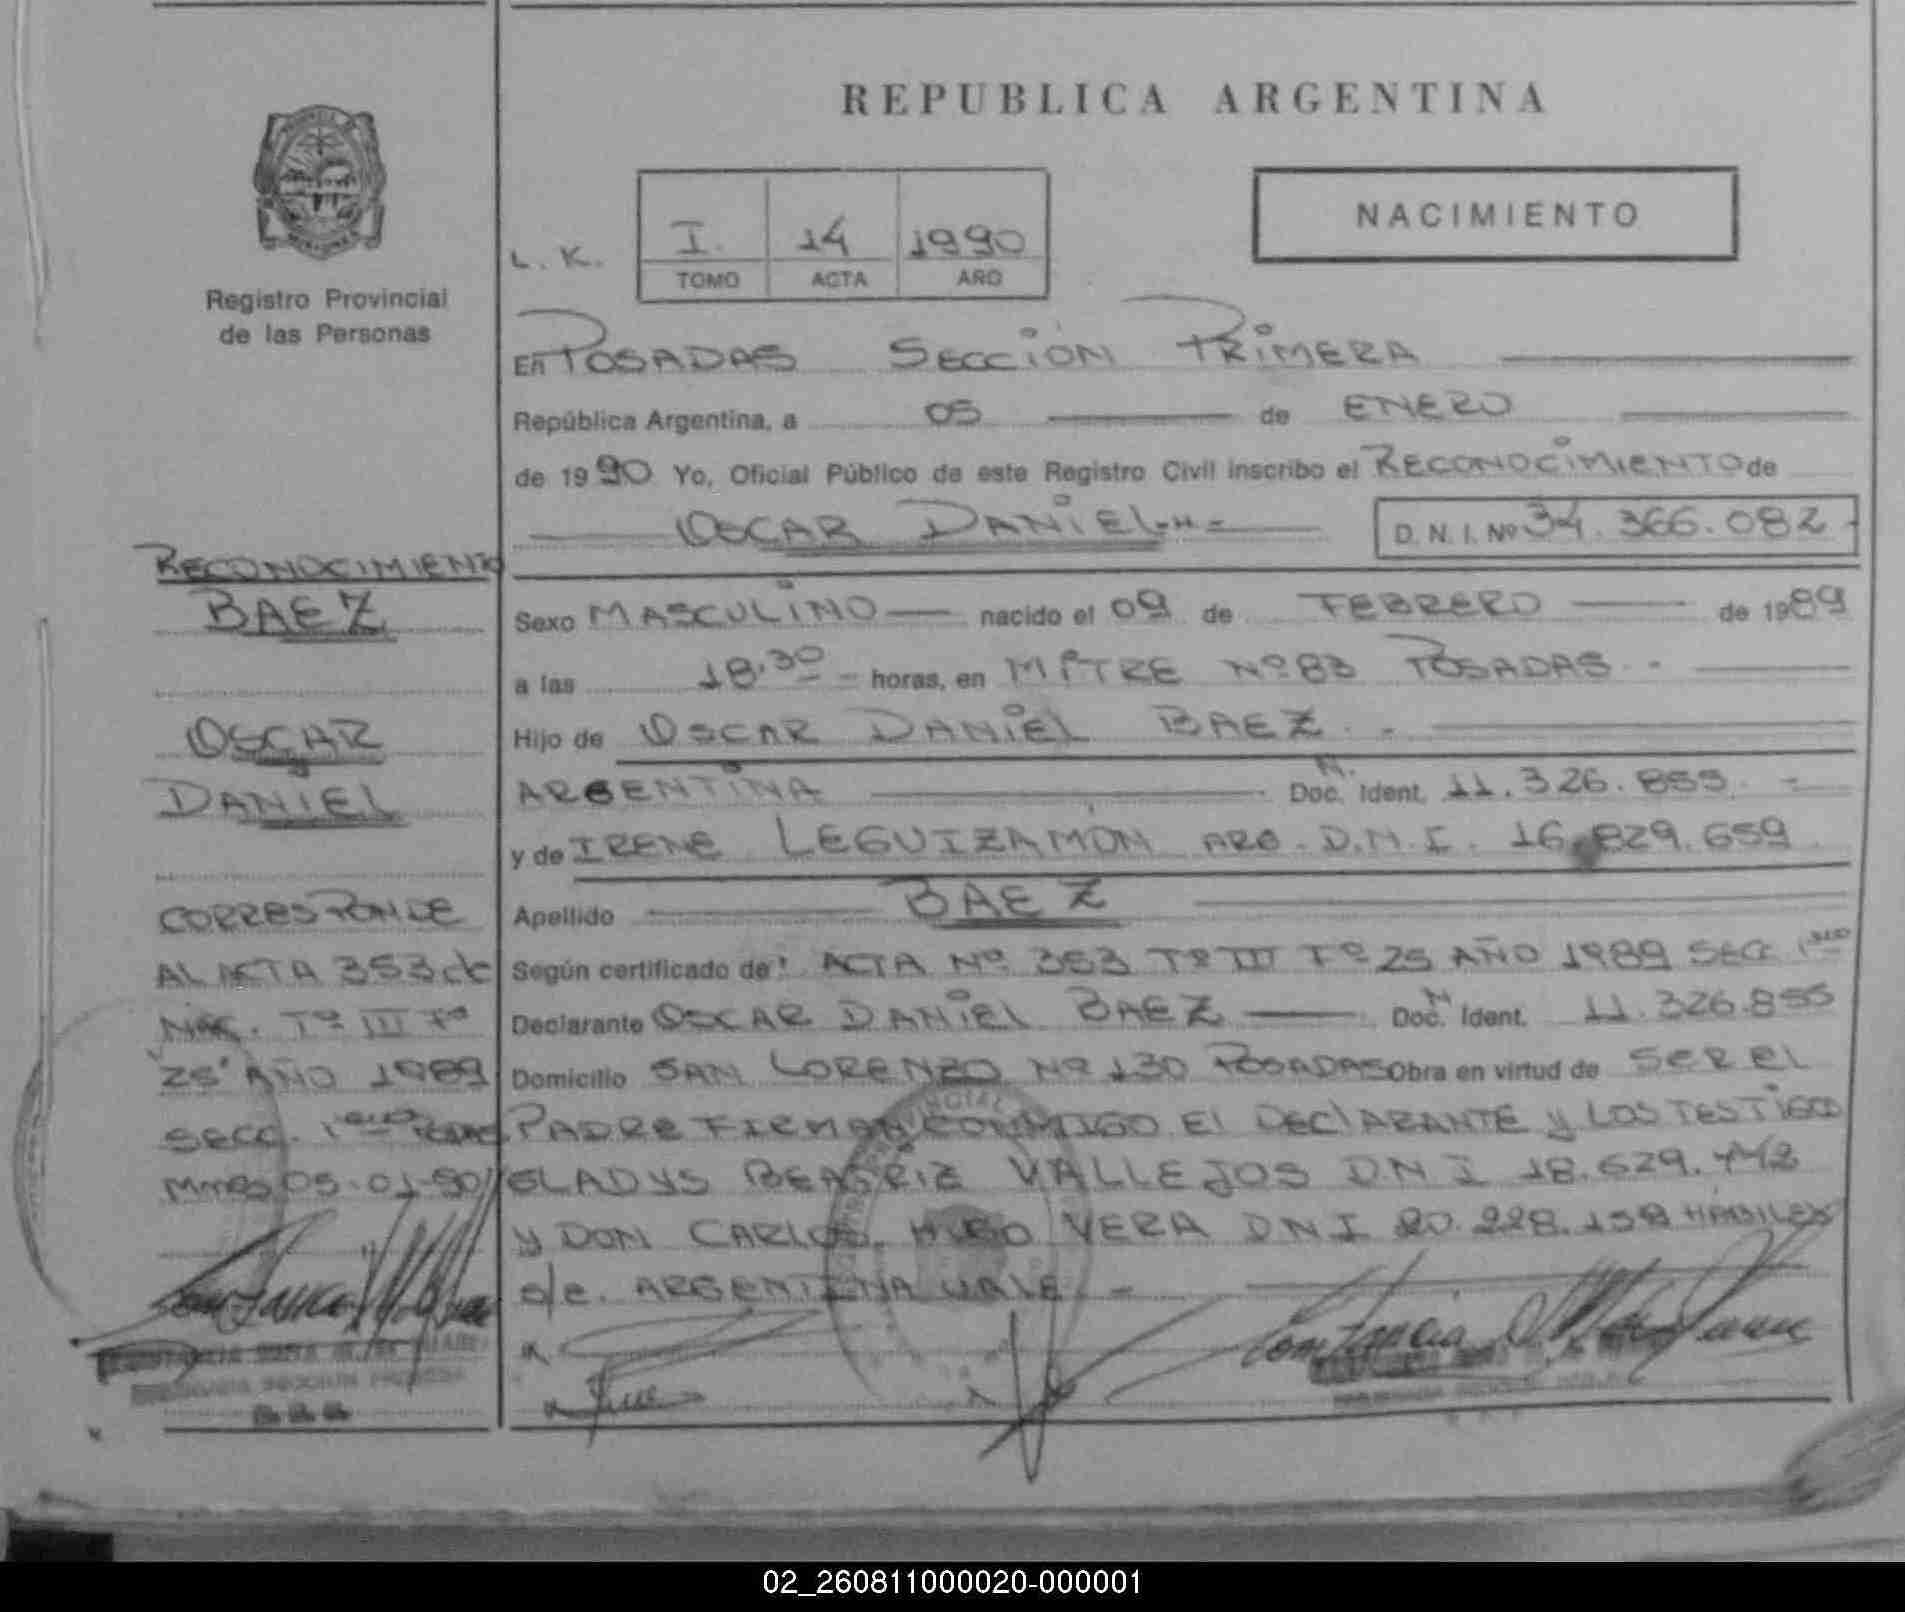 REPUBLICA ARGENTINA
NACIMIENTO
L. K.
I. 14 1990
TOMO ACTA AÑO
Registro Provincial
de las Personas
En POSADAS SECCIÓN PRIMERA
República Argentina, a 05 de ENERO
de 1990 Yo, Oficial Público de este Registro Civil inscribo el RECONOCIMIENTO de
OSCAR DANIEL
D. N. I. Nº 34.366.082
Sexo MASCULINO nacido el 09 de FEBRERO de 1989
a las 18.30 horas, en MITRE Nº 83 POSADAS
Hijo de OSCAR DANIEL BAEZ
ARGENTINA Doc. Ident. 11.326.855
y de IRENE LEGUIZAMÓN ARG. D.N.I. 16.829.659
Apellido BAEZ
Según certificado de: ACTA Nº 353 Tº III Fº 25 AÑO 1989 SECC. 1
Declarante OSCAR DANIEL BAEZ Doc. Ident. 11.326.855
Domicilio SAN LORENZO Nº 130 POSADAS Obra en virtud de SER EL
PADRE FIRMAN CONMIGO El DEClARANTE y LOS TESTIGOS
GLADYS BEATRIZ VALLEJOS D.N.I 18.629.442
y DON CARLOS HUGO VERA DNI 20.228.158 HÁBILES
s/e. ARGENTINA VALE
RECONOCIMIENTO
BAEZ
OSCAR
DANIEL
CORRESPONDE
AL ACTA 353 de
NAC. Tº III Fº
25 AÑO 1989
SECC. 1
Mnes 05-01-90
02_260811000020-000001